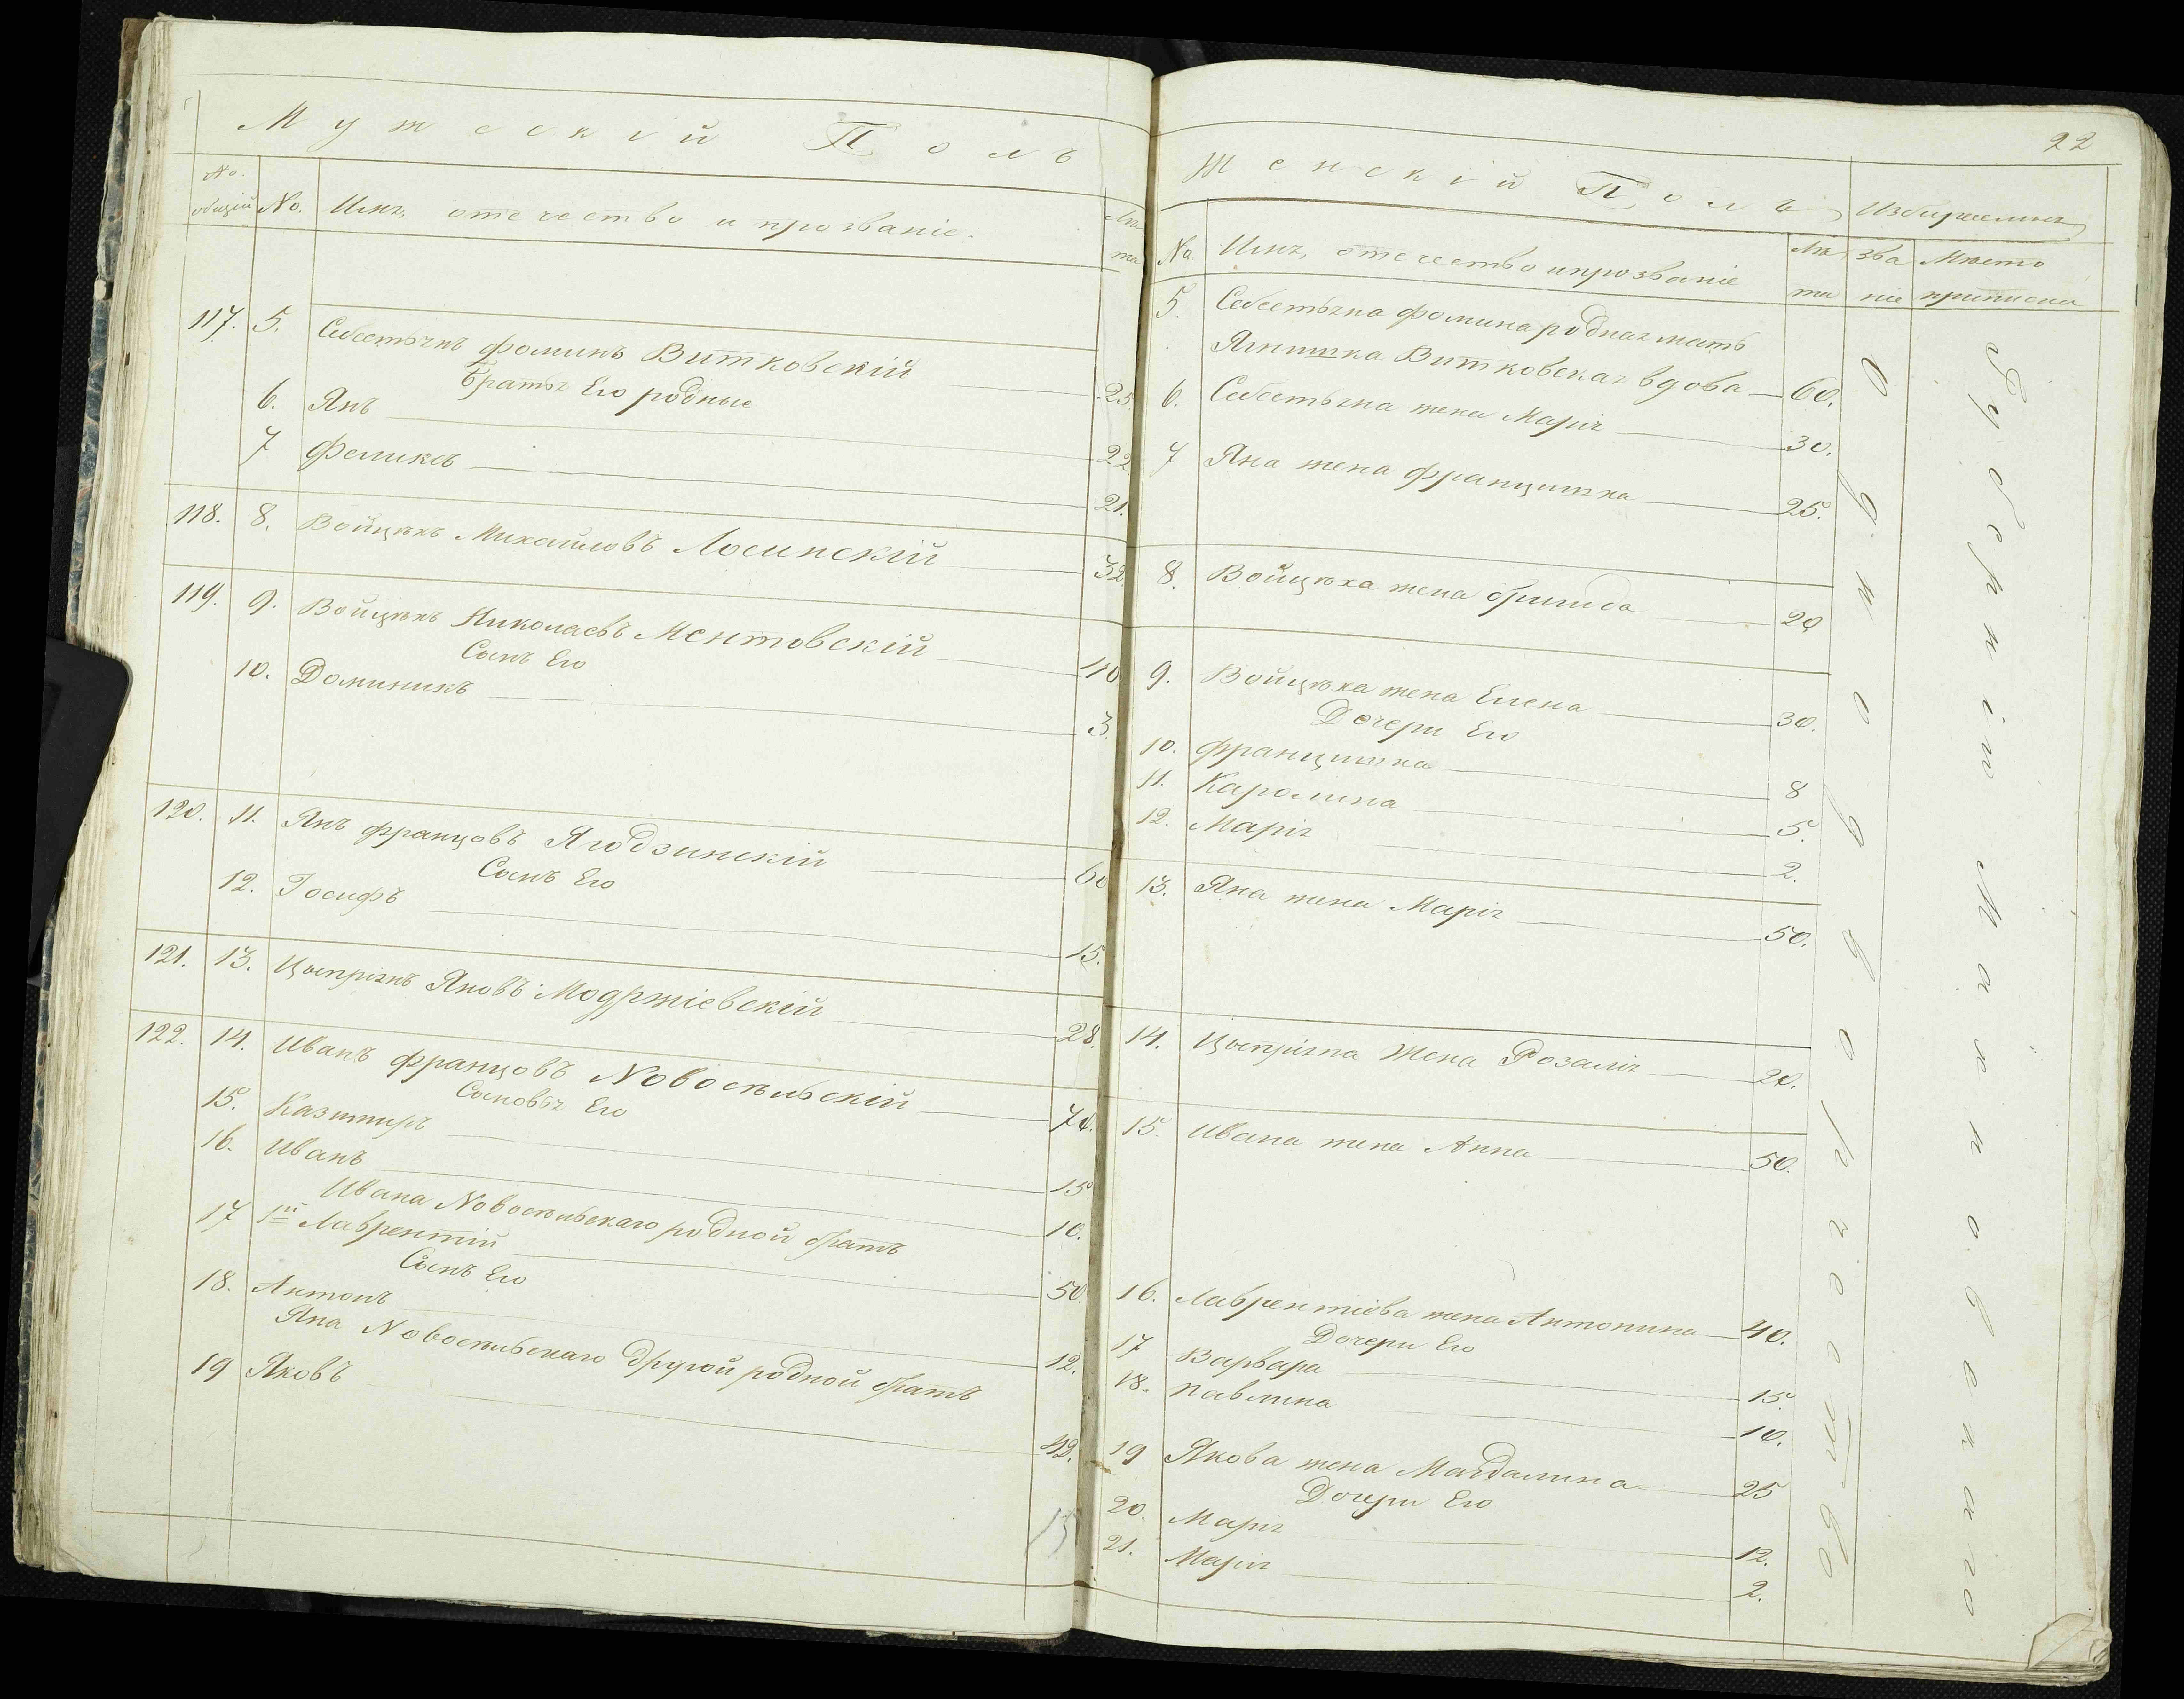 Мужескій Полъ
№ общій
№.
Имя, отечество и прозваніе.
Лѣта
117. 5. Себестьянъ Фоминъ Витковскій 25.
Братья Его родные
6. Янъ 22
7 Феликсъ 21.
118. 8. Войцѣхъ Михайловъ Лосинскій 32.
119. 9. Войцѣхъ Николаевъ Ментовскій 40
Сынъ Его
10. Доминикъ 3.
120. 11. Янъ Францовъ Ягодзинскій 60
Сынъ Его
12. Іосифъ 15.
121. 13. Цыпріянъ Яновъ Модржіевскій 28.
122. 14. Иванъ Францовъ Новосѣльскій 70.
Сыновья Его
15. Казимиръ 15.
16. Иванъ 10.
Ивана Новосѣльскаго родной братъ
17 1й Лаврентій 50.
Сынъ Его
18. Антонъ 12.
Яна Новосѣльскаго другой родной братъ
19 Яковъ 42.
15
22
Женскій Полъ
Избираемыя
№
Имя, отечество и прозваніе
Лѣта
званіе
Мѣсто приписки
5. Себестьяна Фомина родная мать
Ягнишка Витковская вдова 60.
6. Себестьяна жена Марія 30.
7 Яна жена Францишка 25.
8. Войцѣха жена Бригида 20
9. Войцѣха жена Елена 30.
Дочери Его
10. Францишка 8
11. Каролина 5.
12. Марія 2.
13. Яна жена Марія 50.
14. Цыпріяна Жена Розалія 20.
15. Ивана жена Анна 50.
16. Лаврентіова жена Антонина 40.
Дочери Его
17 Варвара 15.
18. Павлина 10.
19 Якова жена Магдалина 25
Дочери Его
20. Марія 12.
21. Марія 2.
Однодворчество
Губерніи Махновскаго